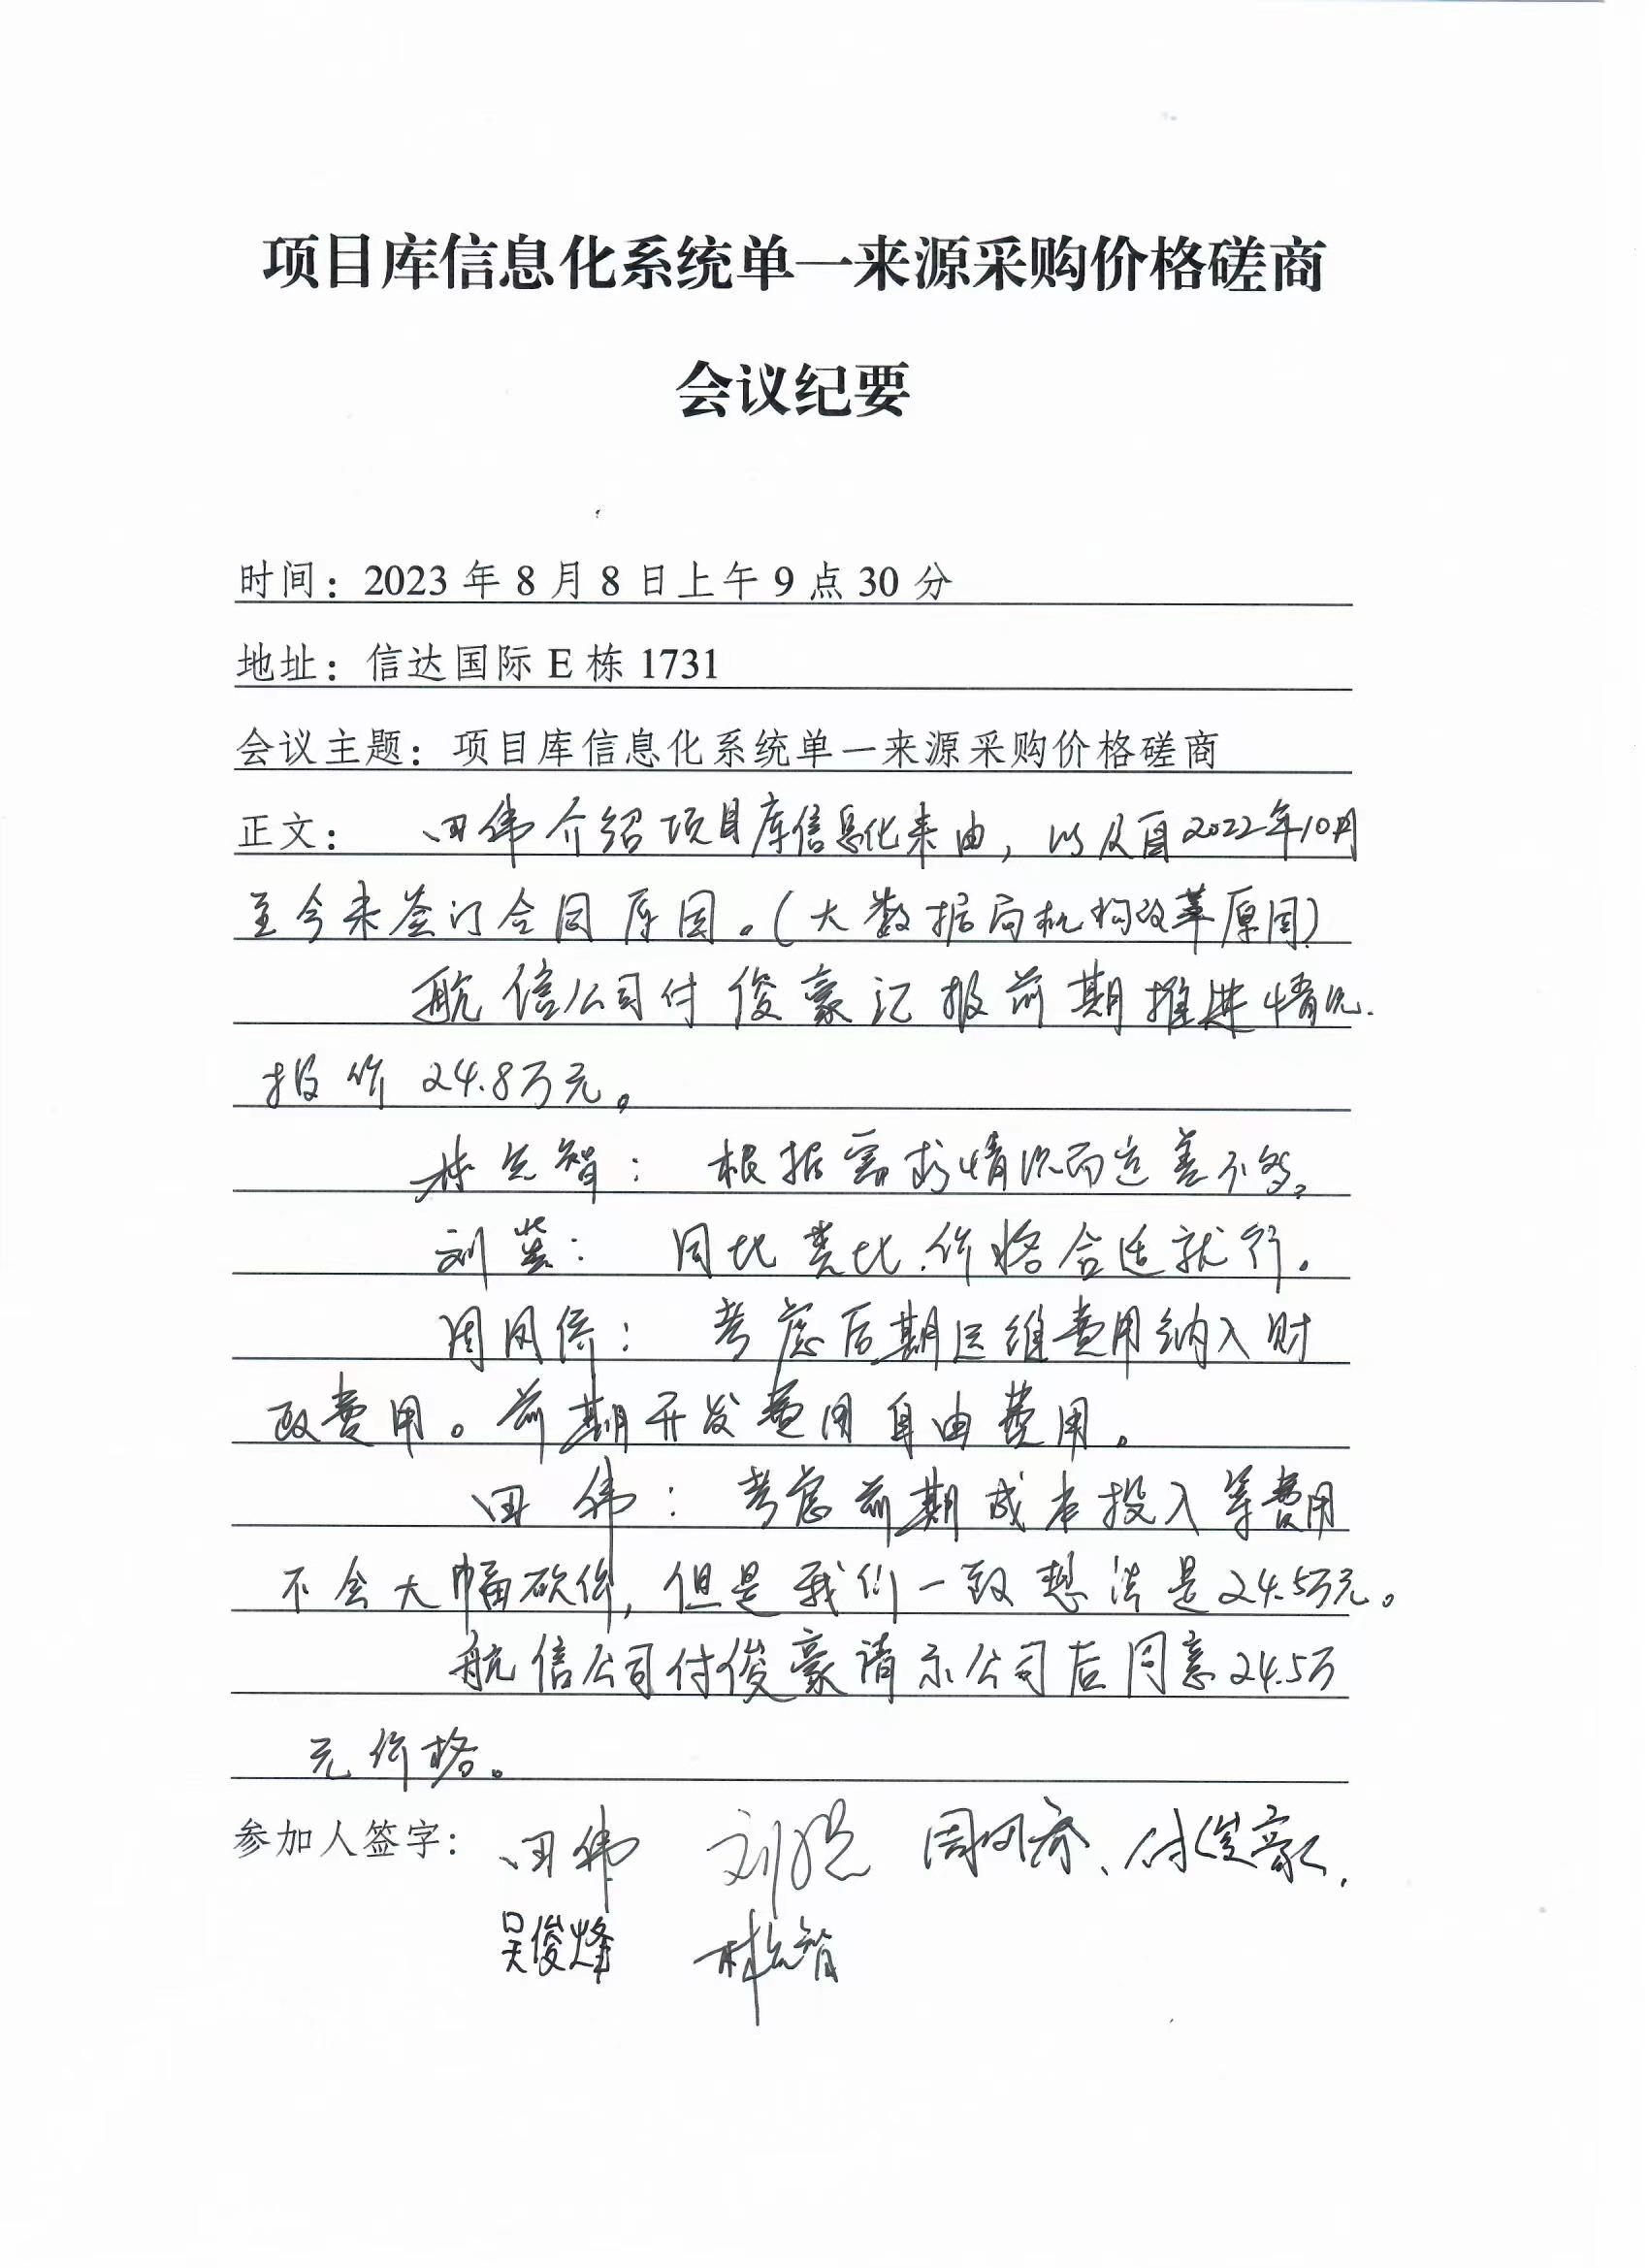 项目库信息化系统单一来源采购价格磋商
会议纪要
时间：2023年8月8日上午9点30分
地址：信达国际E栋1731
会议主题：项目库信息化系统单一来源采购价格磋商
正文：田伟介绍项目库信息化来由，以及自2022年10月
至今未签订合同原因。（大数据局机构改革原因）
航信公司付俊豪汇报前期推进情况.
报价24.8万元。
林志智：根据需求情况而定差不多。
刘：同比类比.价格合适就行。
周凤侨：考虑后期运维费用纳入财
政费用。前期开发费用自由费用。
田伟：考虑前期成本投入等费用
不会大幅砍价，但是我们一致想法是24.5万元。
航信公司付俊豪请示公司后同意24.5万
元价格。
参加人签字：田伟 刘 周 、付俊豪.
吴俊烽 林志智